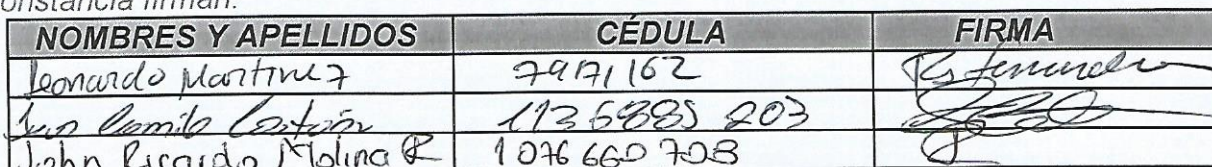 onstancia firman:
NOMBRES Y APELLIDOS CÉDULA FIRMA
Leonardo Martinez 79171162
Juan Camilo Castañ 1136885203
John Ricardo Molina R 1076660708